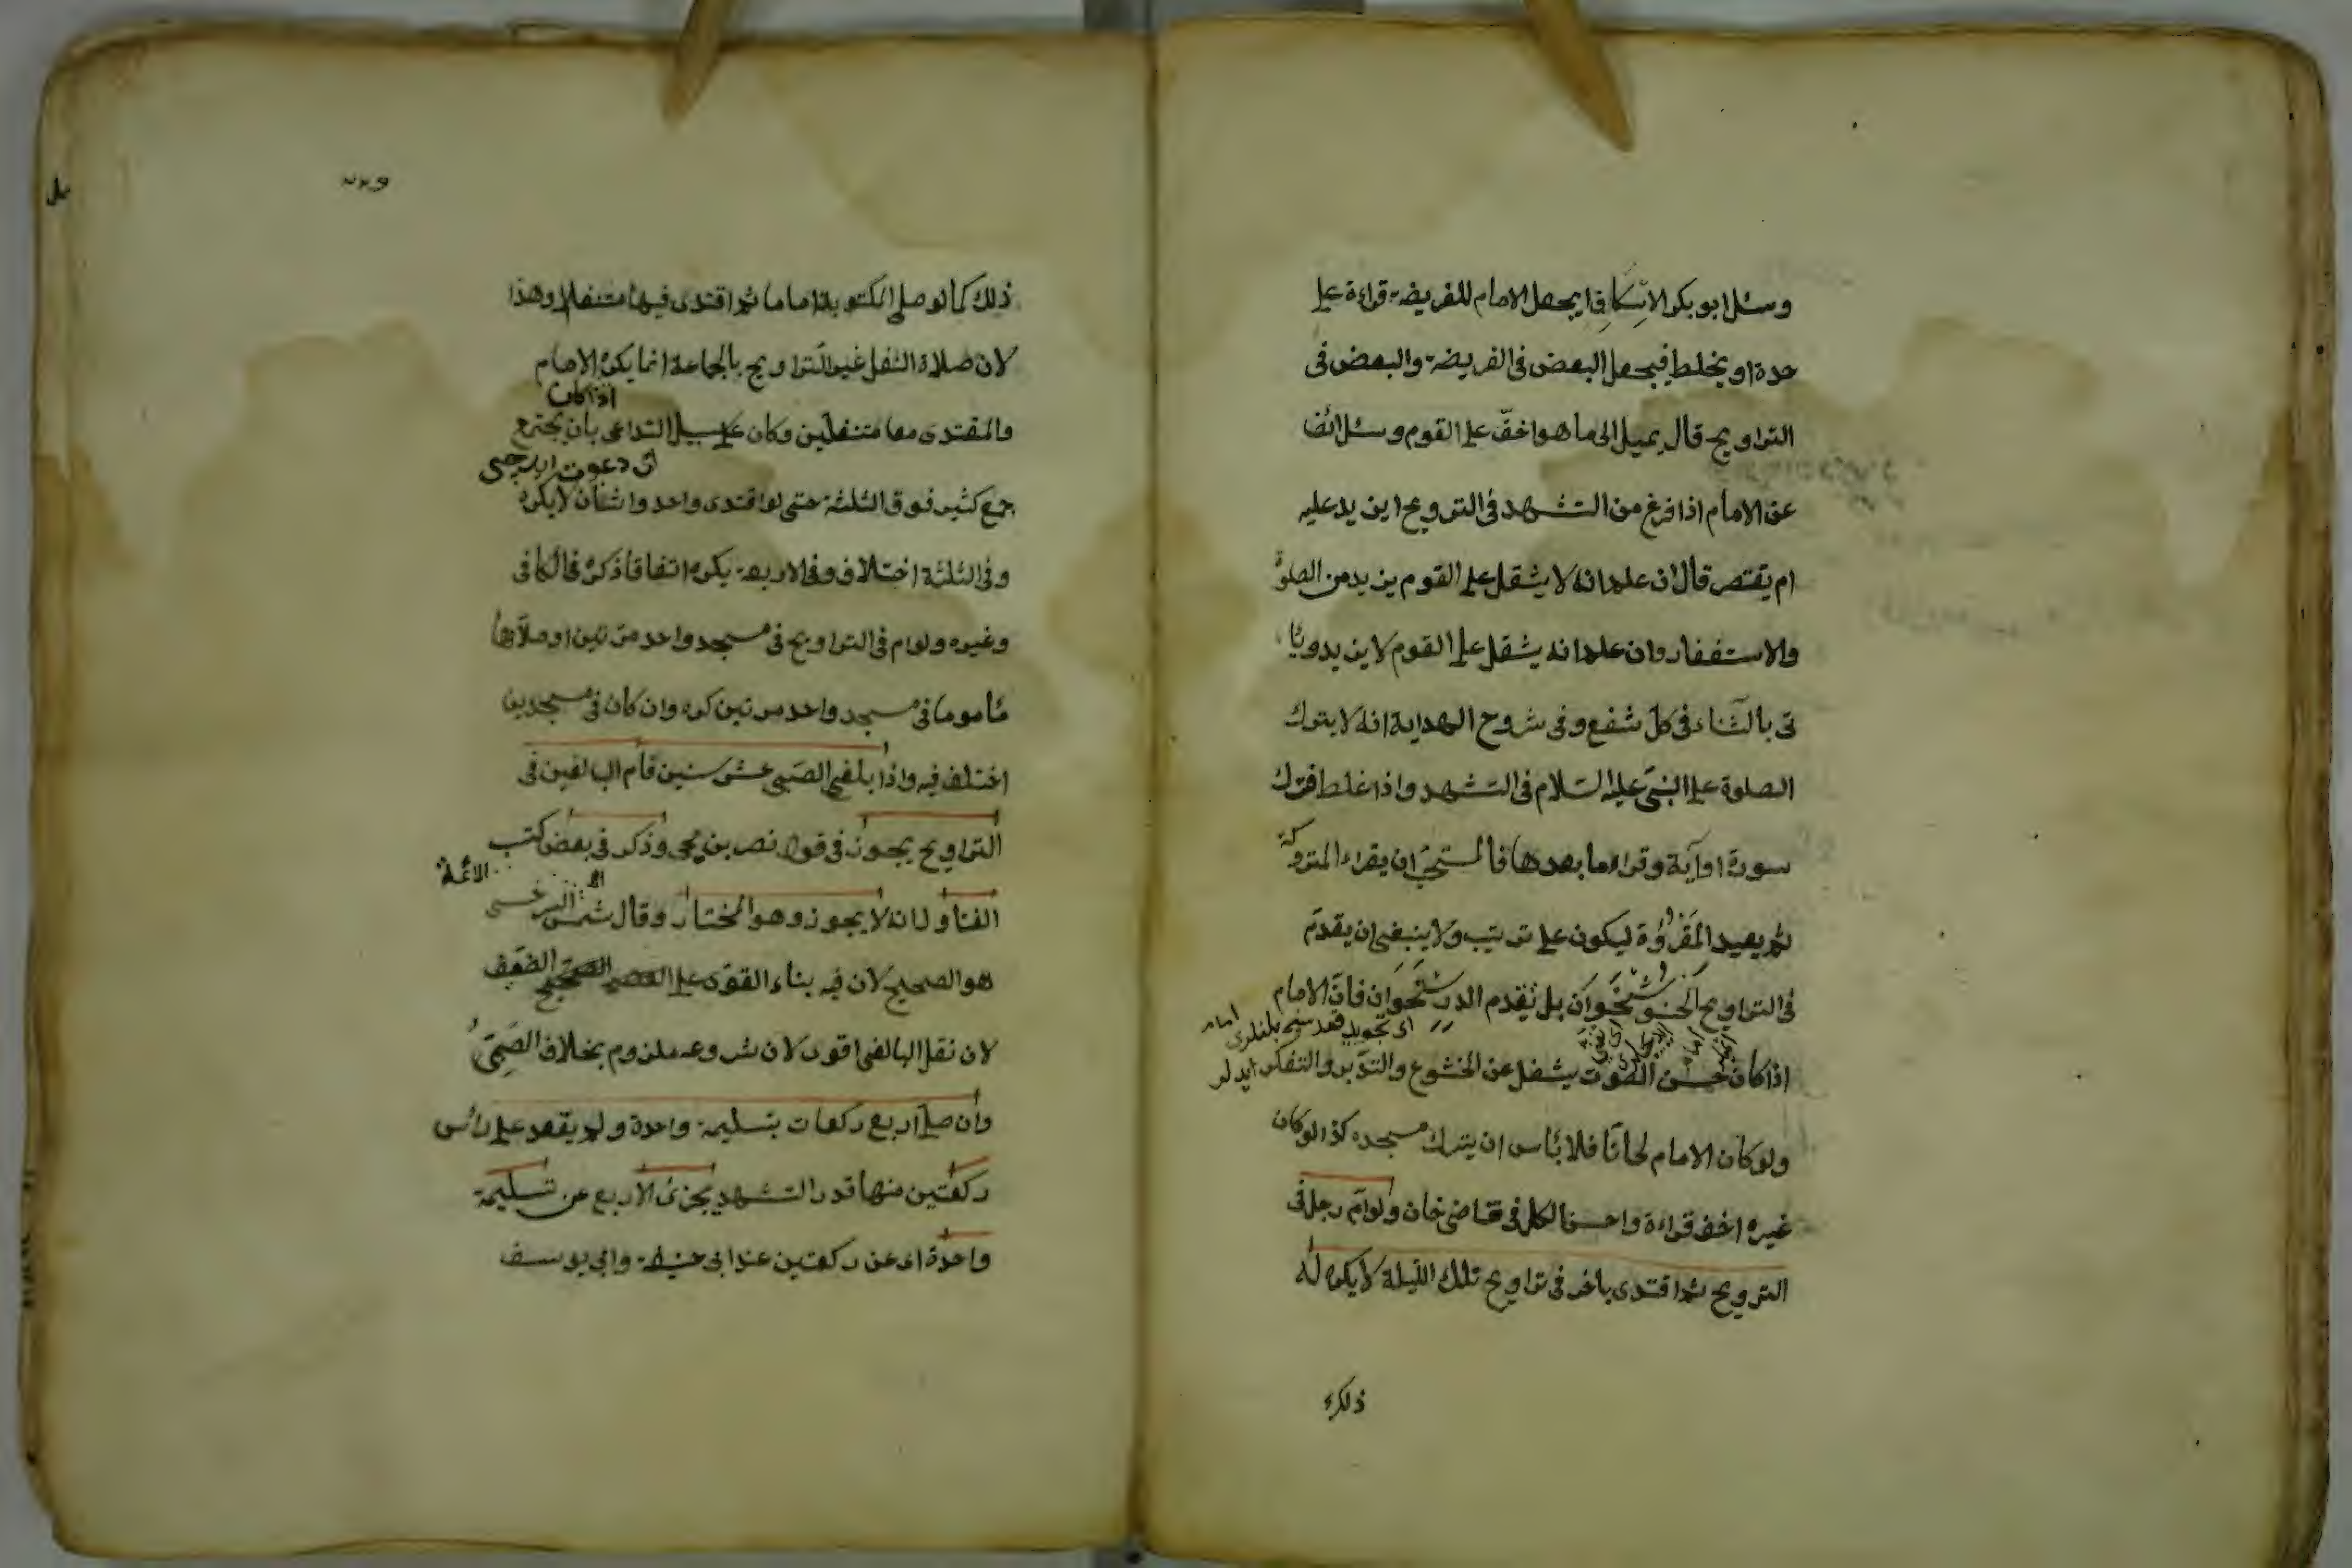 وسئل ابو بكر الاسكاف ايجعل الامام للفريضة قراءة على
حدة او يخلط فيجعل البعض فى الفريضة والبعض فى
التراويح قال يميل الى ما هو اخفّ على القوم وسئل ائضا
عن الامام اذا فرغ من التشهد فى الترويح ايزيد عليه
ام يقتصر قال ان علم انه لا يثقل على القوم يزيد من الصلوة
والاستغفار وان علم انه يثقل على القوم لا يزيد ويأ
تى بالثناء فى كل شفع وفى شروح الهداية انه لا يترك
الصلوة على النبى عليه السلام فى التشهد واذا غلط فترك
سورة او آية وقراء ما بعدها فالمستحب ان يقراء المتروكة
ثم يعيد المقروة ليكون على ترتيب ولا ينبغى ان يقدم
فى التراويح الخوشخوان بل يقدم الدرستخوان فان الامام
اذا كان حسن الصوت يشغل عن الخشوع والتدبر والتفكر
ولو كان الامام لحانا فلا بأس ان يترك مسجده كذا لو كان
غيره اخف قراءة واحسن الكل فى قاضى خان ولو ام رجل فى
الترويح ثم اقتدى باخر فى تراويح تلك الليلة لا يكره له
ذلك
ذلك كما لو صلى المكتوبة اماما ثم اقتدى فيها متنفلا وهذا
لان صلاة النفل غير التراويح بالجماعة انما يكره الامام
اذا كان
والمقتدى معا متنفلين وكان على سبيل التداعى بان يجتمع
اى دعوت
جمع كثير فوق الثلثة حتى لو اقتدى واحد واثنان لا يكره
وفى الثلثة اختلاف وفى الاربعة يكره اتفاقا ذكره فى الكافى
وغيره ولو ام فى التراويح فى مسجد واحد مرتين او صلاها
مأموما فى مسجد واحد مرتين كره وان كان فى مسجدين
اختلف فيه واذا بلغ الصبى عشر سنين فام البالغين فى
التراويح يجوز فى قول نصر بن يحيى وذكر فى بعض كتب
الفتاول انه لا يجوز وهو المختار وقال شمس الائمة السرخسى
هو الصحيح لان فيه بناء القوى على الضعيف
لان نفل البالغ اقوى لان شروعه ملزوم بخلاف الصبى
وان صلى اربع ركعات بتسليمة واحدة ولم يقعد على رأس
ركعتين منها قدر التشهد يجزئ الاربع عن تسليمة
واحدة اى عن ركعتين عند ابى حنيفة وابى يوسف